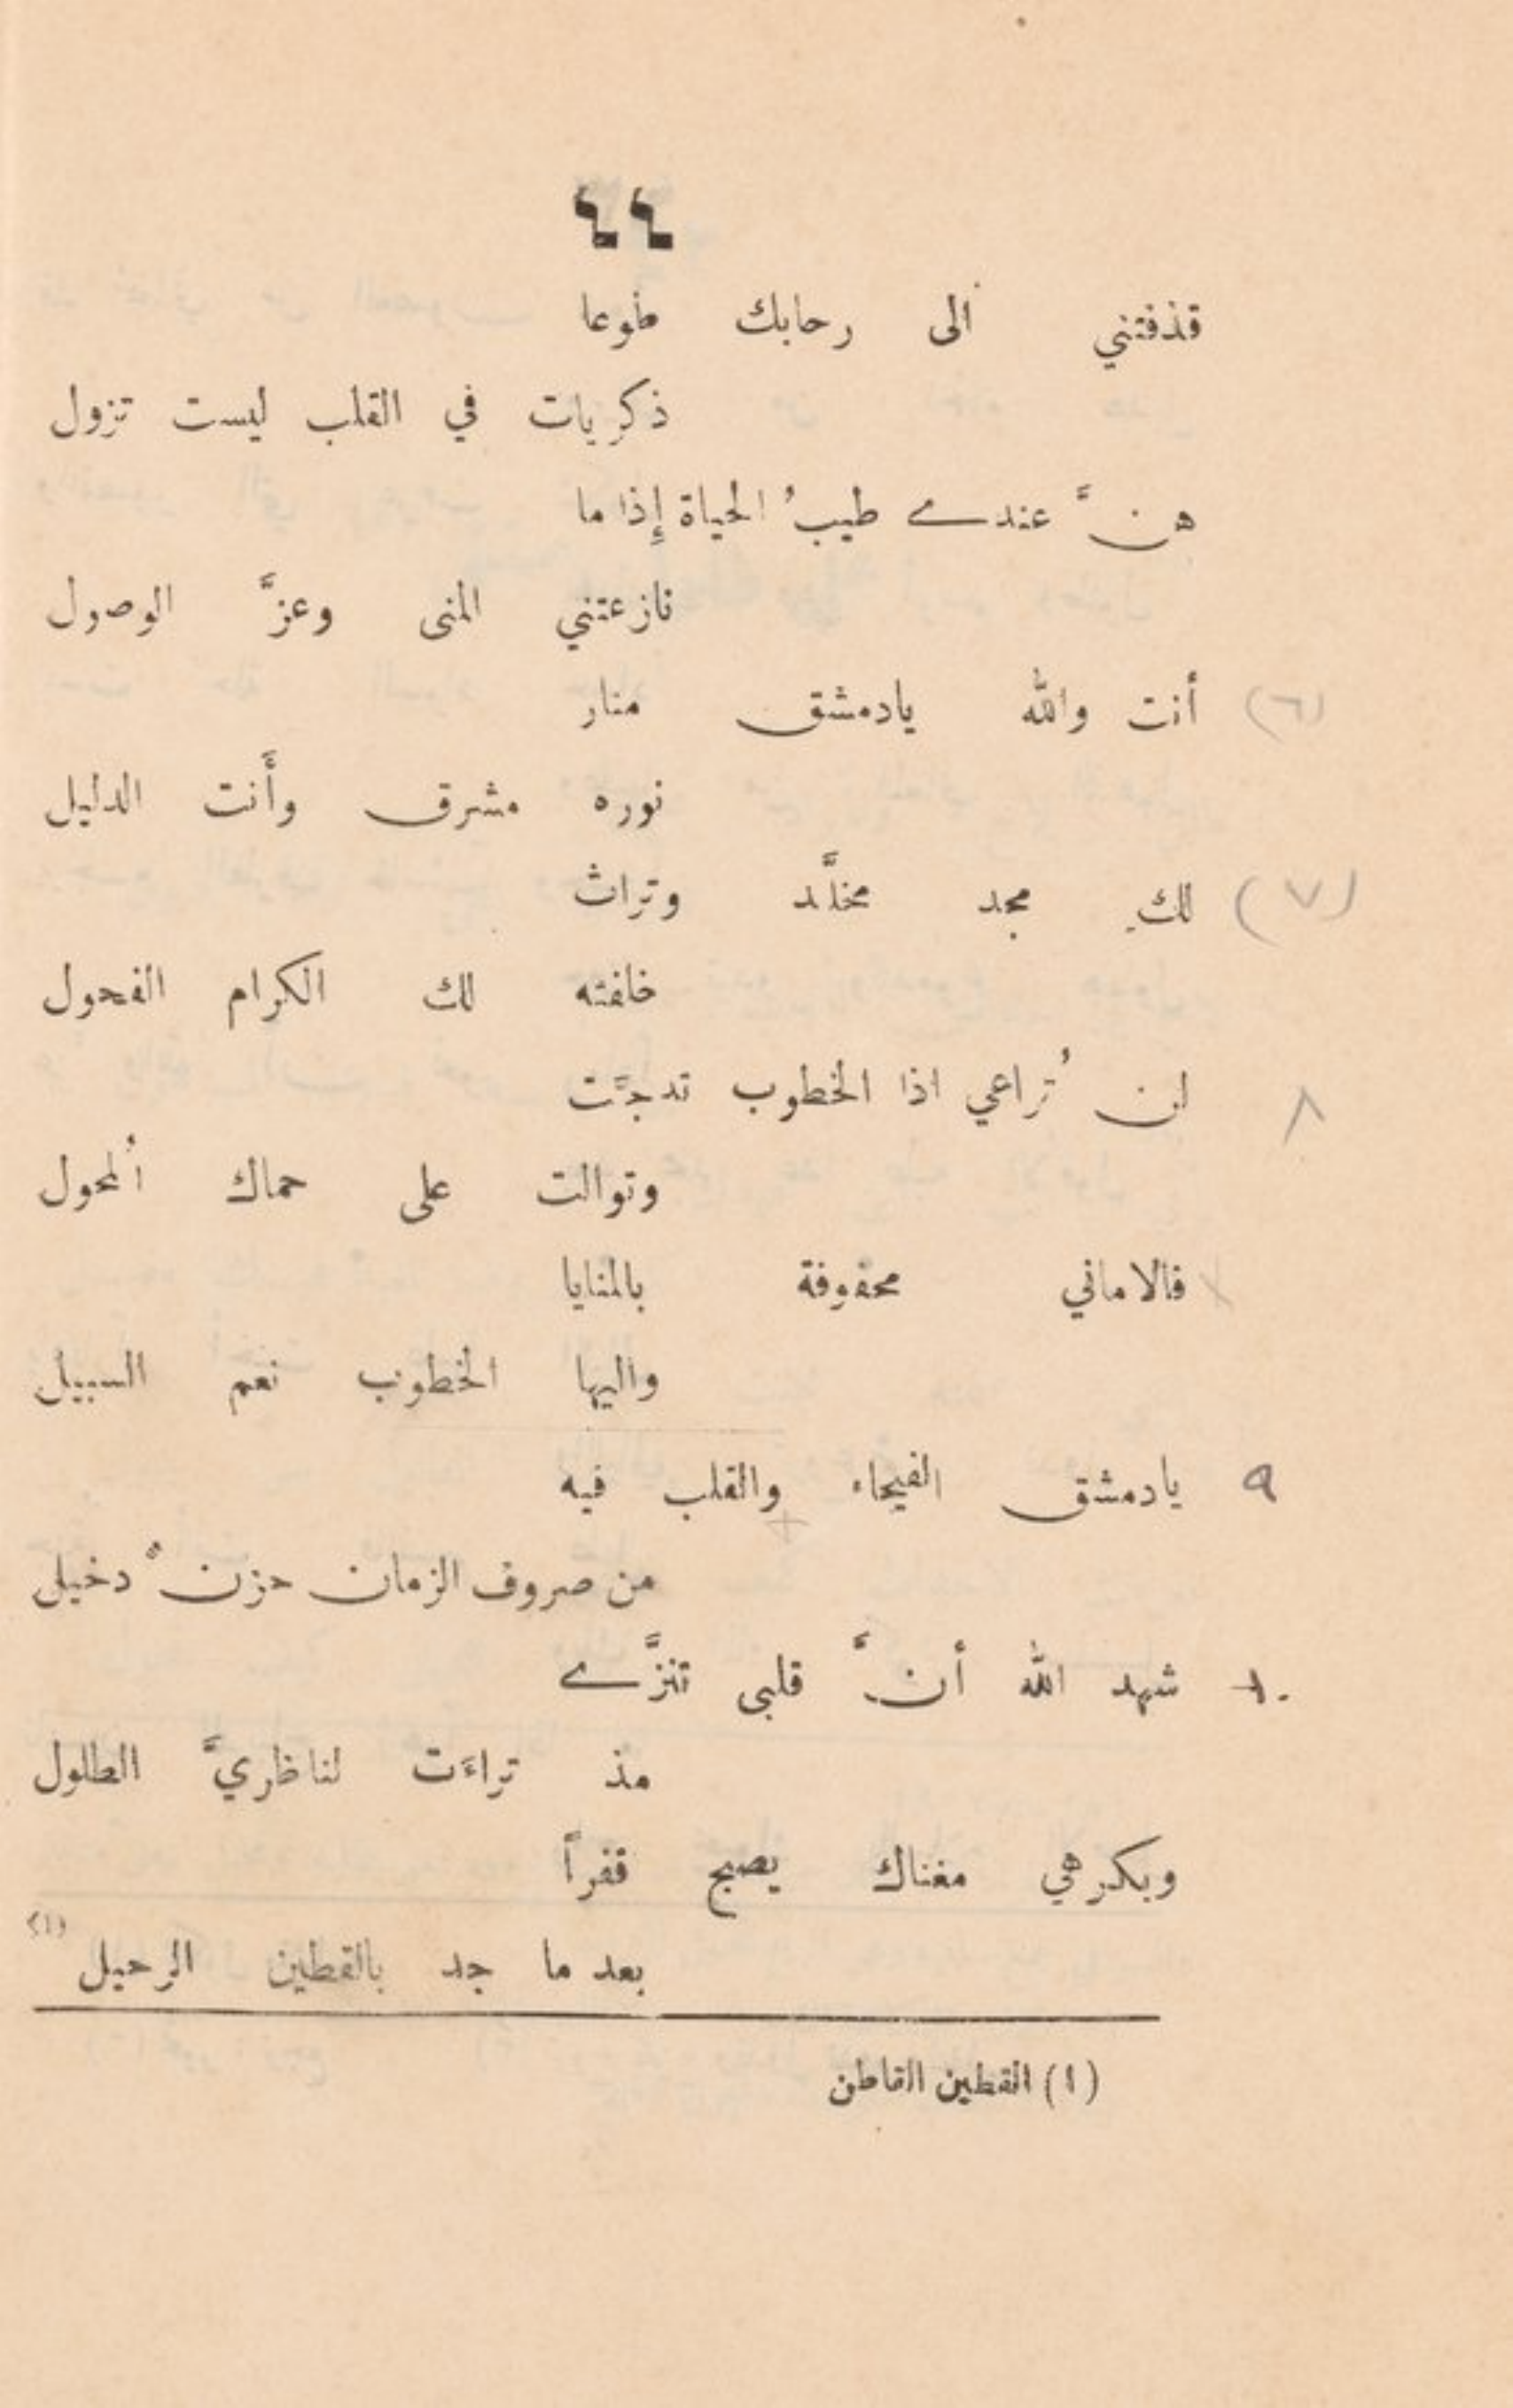 ٤٤
قذفتني الى رحابك طوعا
ذكريات في القلب ليست تزول
هنَّ عندي طيبُ الحياة إِذا ما
نازعتني المنى وعزَّ الوصول
(٦) أنت والله يادمشق منار
نوره مشرق وأَنت الدليل
(٧) لكِ مجد مخلَّد وتراث
خلفته لك الكرام الفحول
٨ لن تُراعي اذا الخطوب تدجَّت
وتوالت على حماك المُحول
فالاماني محفوفة بالمنايا
واليها الخطوب نعم السبيل
٩ يادمشق الفيحاء والقلب فيه
من صروف الزمان حزنٌ دخيل
١٠ شهد الله أنَّ قلبي تنزَّى
مذ تراءَت لناظريَّ الطلول
وبكرهي مغناك يصبح قفراً
بعد ما جد بالقطين الرحيل (١)
(١) القطين القاطن